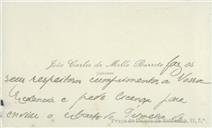 João Carlos de Mello Barreto faz os
seus respeitosos cumprimentos a Vossa
Excelencia e pede licença para
enviar o extracto